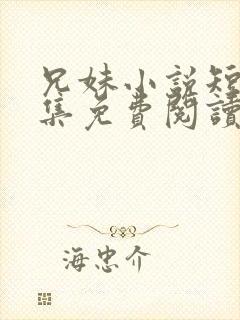 兄妹小說短
集免費閱讀
海忠介